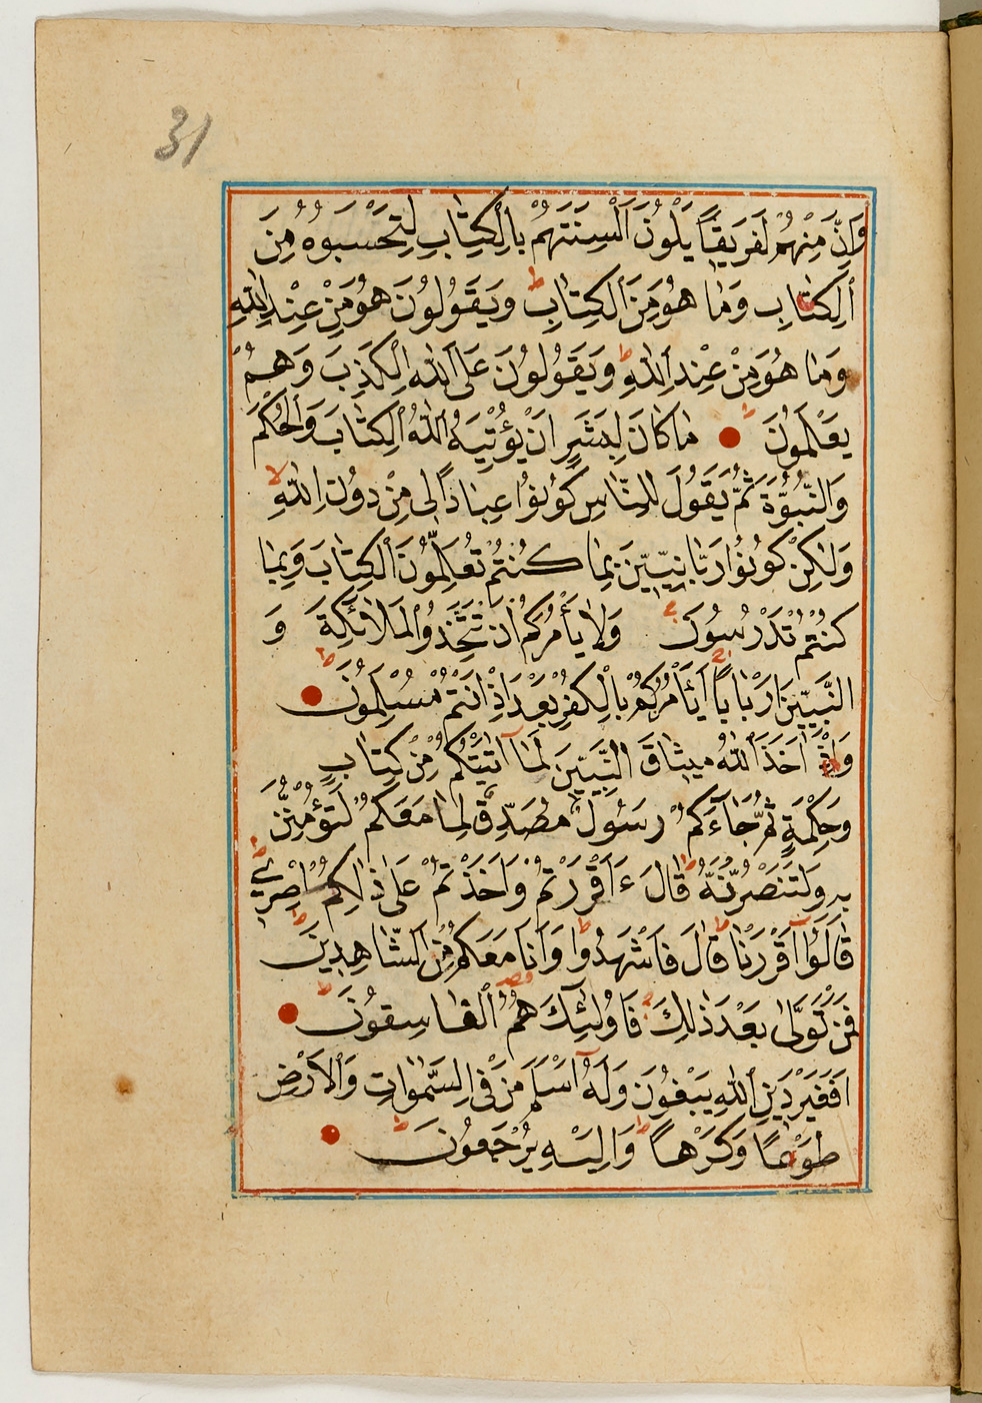 31
وَاِنَّ مِنْهُمْ لَفَرٖيقًا يَلْوُنَ اَلْسِنَتَهُمْ بِالْكِتَابِ لِتَحْسَبُوهُ مِنَ
اَلْكِتَابِ وَمَا هُوَ مِنَ الْكِتَابِ ط وَيَقُولُونَ هُوَ مِنْ عِنْدِ اللّٰهِ
وَمَا هُوَ مِنْ عِنْدِ اللّٰهِ ط وَيَقُولُونَ عَلَى اللّٰهِ الْكَذِبَ وَهُمْ
يَعْلَمُونَ مَا كَانَ لِبَشَرٍ اَنْ يُؤْتِيَهُ اللّٰهُ الْكِتَابَ وَالْحُكْمَ
وَالنُّبُوَّةَ ثُمَّ يَقُولَ لِلنَّاسِ كُونُوا عِبَادًا لٖى مِنْ دُونِ اللّٰهِ لا
وَلٰكِنْ كُونُوا رَبَّانِيّٖينَ بِمَا كُنْتُمْ تُعَلِّمُونَ الْكِتَابَ وَبِمَا
كُنْتُمْ تَدْرُسُونَ وَلَا يَأْمُرَكُمْ اَنْ تَتَّخِذُوا الْمَلَائِكَةَ وَ
النَّبِيّٖينَ اَرْبَابًا اَيَأْمُرُكُمْ بِالْكُفْرِ بَعْدَ اِذْ اَنْتُمْ مُسْلِمُونَ ط
وَاِذْ اَخَذَ اللّٰهُ مٖيثَاقَ النَّبِيّٖينَ لَمَا اٰتَيْتُكُمْ مِنْ كِتَابٍ
وَحِكْمَةٍ ثُمَّ جَاءَكُمْ رَسُولٌ مُصَدِّقٌ لِمَا مَعَكُمْ لَتُؤْمِنُنَّ
بِهٖ وَلَتَنْصُرُنَّهُ ط قَالَ ءَاَقْرَرْتُمْ وَاَخَذْتُمْ عَلٰى ذٰلِكُمْ اِصْرٖى ط
قَالُوا اَقْرَرْنَا ط قَالَ فَاشْهَدُوا ط وَاَنَا مَعَكُمْ مِنَ الشَّاهِدٖينَ ط
فَمَنْ تَوَلّٰى بَعْدَ ذٰلِكَ فَاُولٰئِكَ هُمُ الْفَاسِقُونَ ط
اَفَغَيْرَ دٖينِ اللّٰهِ يَبْغُونَ وَلَهُ اَسْلَمَ مَنْ فِى السَّمٰوَاتِ وَالْاَرْضِ
طَوْعًا وَكَرْهًا ط وَاِلَيْهِ يُرْجَعُونَ ط